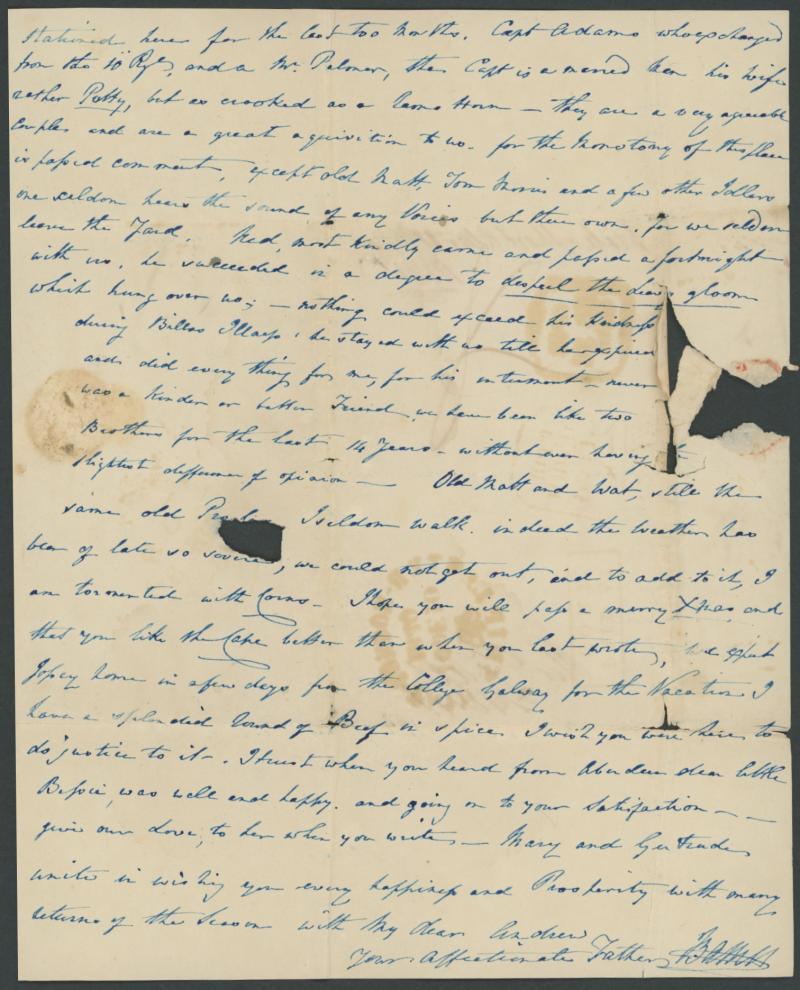 stationed here for the last too Months. Capt Adams who exchanged
from the 10 Rgt, and a Mr. Palmer, the Capt is a married Man his wife
rather Pretty, but as crooked as a Rams Horn — they are a very agreeable
Couple and are a great aquisition to us. for the Monotony of this place
is passed comment, except old Matt, Tom Morris and a few other Idlers
one seldom hears the sound of any Voices but there own. for we seldom
leave the Yard. Ned, most kindly came and passed a fortnight
with us, he succeeded in a degree to despell the gloom
which hung over us; — nothing could exceed his kindness
during Billas Illness: he stayed with us till he expired
and did every thing for me, for his interment — never
was a kinder or better Friend, we have been like two
Brothers for the last 14 Years — without ever having
slightest difference of opinion — Old Matt and Wat, still the
same old I seldom walk. indeed the Weather has
been of late so severe, we could not get out, and to add to it, I
am tormented with Corns — I hope you will pass a merry Xmas, and
that you like the Cape better than when you last wrote, we expect
home in a few days from the College Galway for the Vacation I
have a splendid Round of Beef in spice I wish you were here to
do justice to it — I trust when you heard from Aberdeen dear little
Bessie, was well and happy. and going on to your satisfaction — —
give our love, to her when you write — Mary and Gertrude
unite in wishing you every happiness and Prosperity with many
returns of the Season with My dear Andrew
Your Affectionate Father